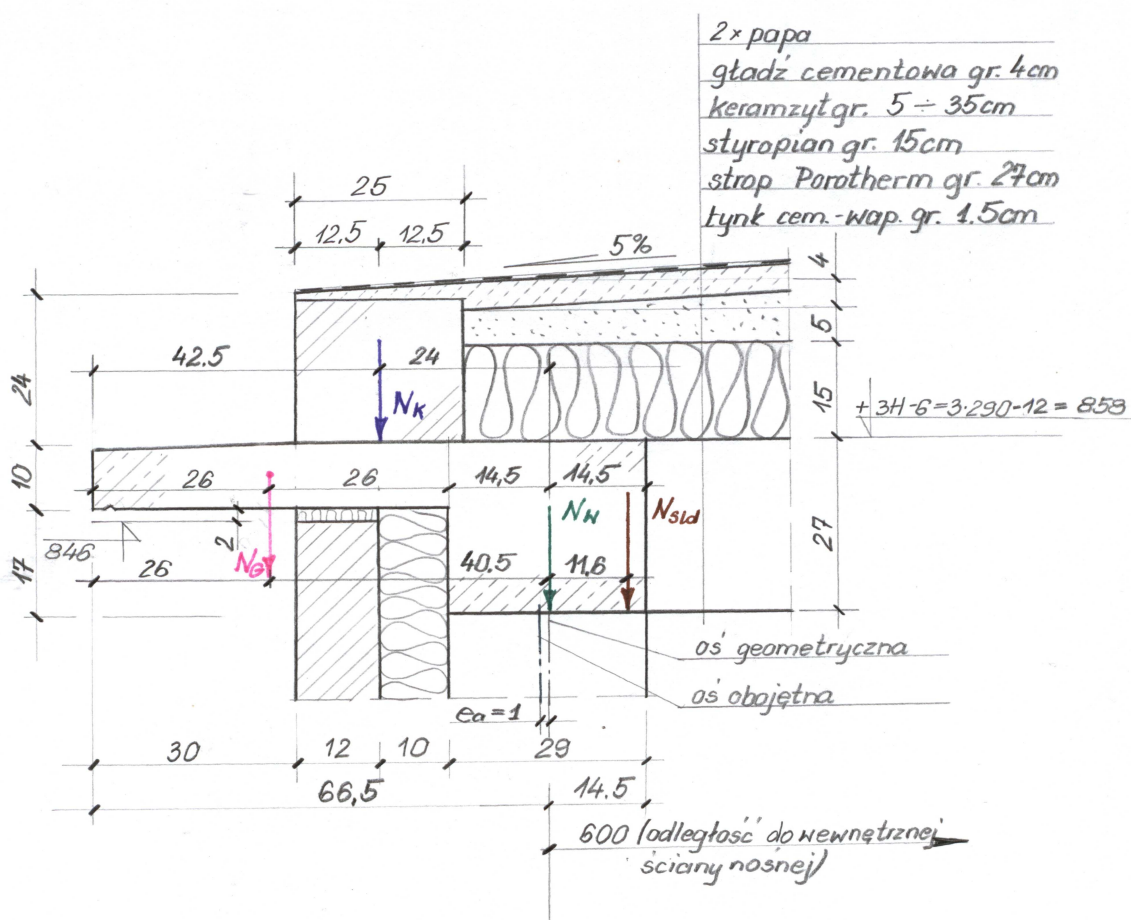 2 × papa
gładź cementowa gr. 4cm
keramzyt gr. 5 ÷ 35cm
styropian gr. 15cm
strop Porotherm gr. 27cm
tynk cem.-wap. gr. 1.5cm
25
12,5 12,5
5%
4
5
15
27
42.5 24
24
10
17
N_K
+ 3H-6=3·290-12 = 858
26 26 14,5 14,5
N_W N_Sld
846
2
N_G
26
40.5 11,6
oś geometryczna
oś obojętna
e_a = 1
30 12 10 29
66,5 14.5
600 (odległość do wewnętrznej
ściany nośnej)